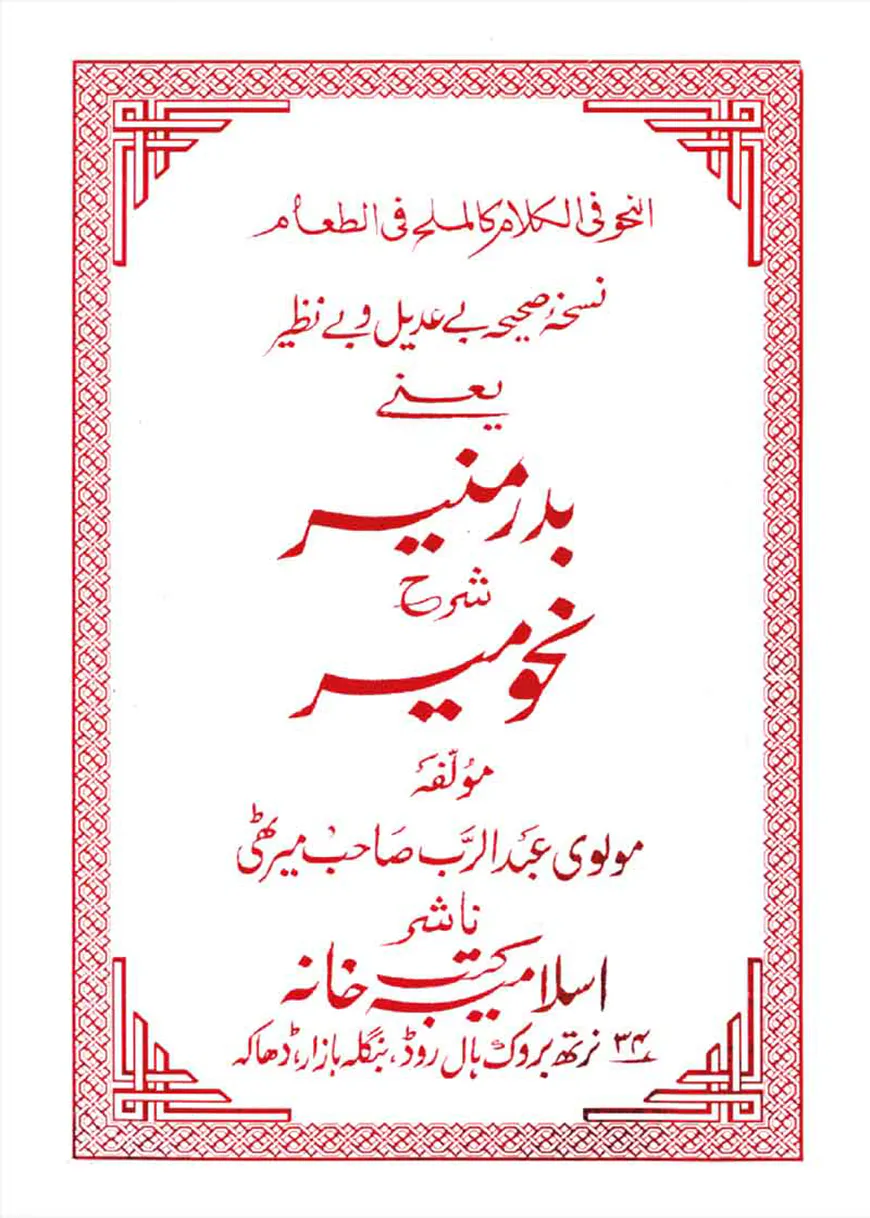 النحو فی الکلام کالملح فی الطعام
نسخۂ صحیحہ بے عدیل و بے نظیر
یعنے
بدر منیر
شرح
نحو میر
مؤلفہٗ
مولوی عبد الرب صاحب میرٹھی
ناشر
اسلامیہ کتب خانہ
۳۴ نرتھ بروک ہال روڈ، بنگلہ بازار، ڈھاکہ